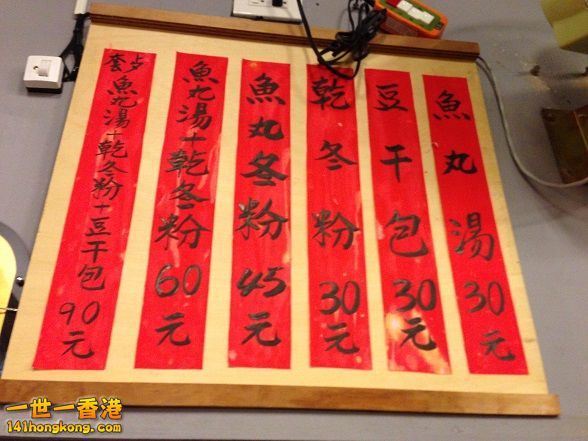 魚丸湯30元
豆干包30元
乾冬粉30元
魚丸冬粉45元
魚丸湯+乾冬粉60元
套歺
魚丸湯+乾冬粉+豆干包90元
一世一香港
141hongkong.com